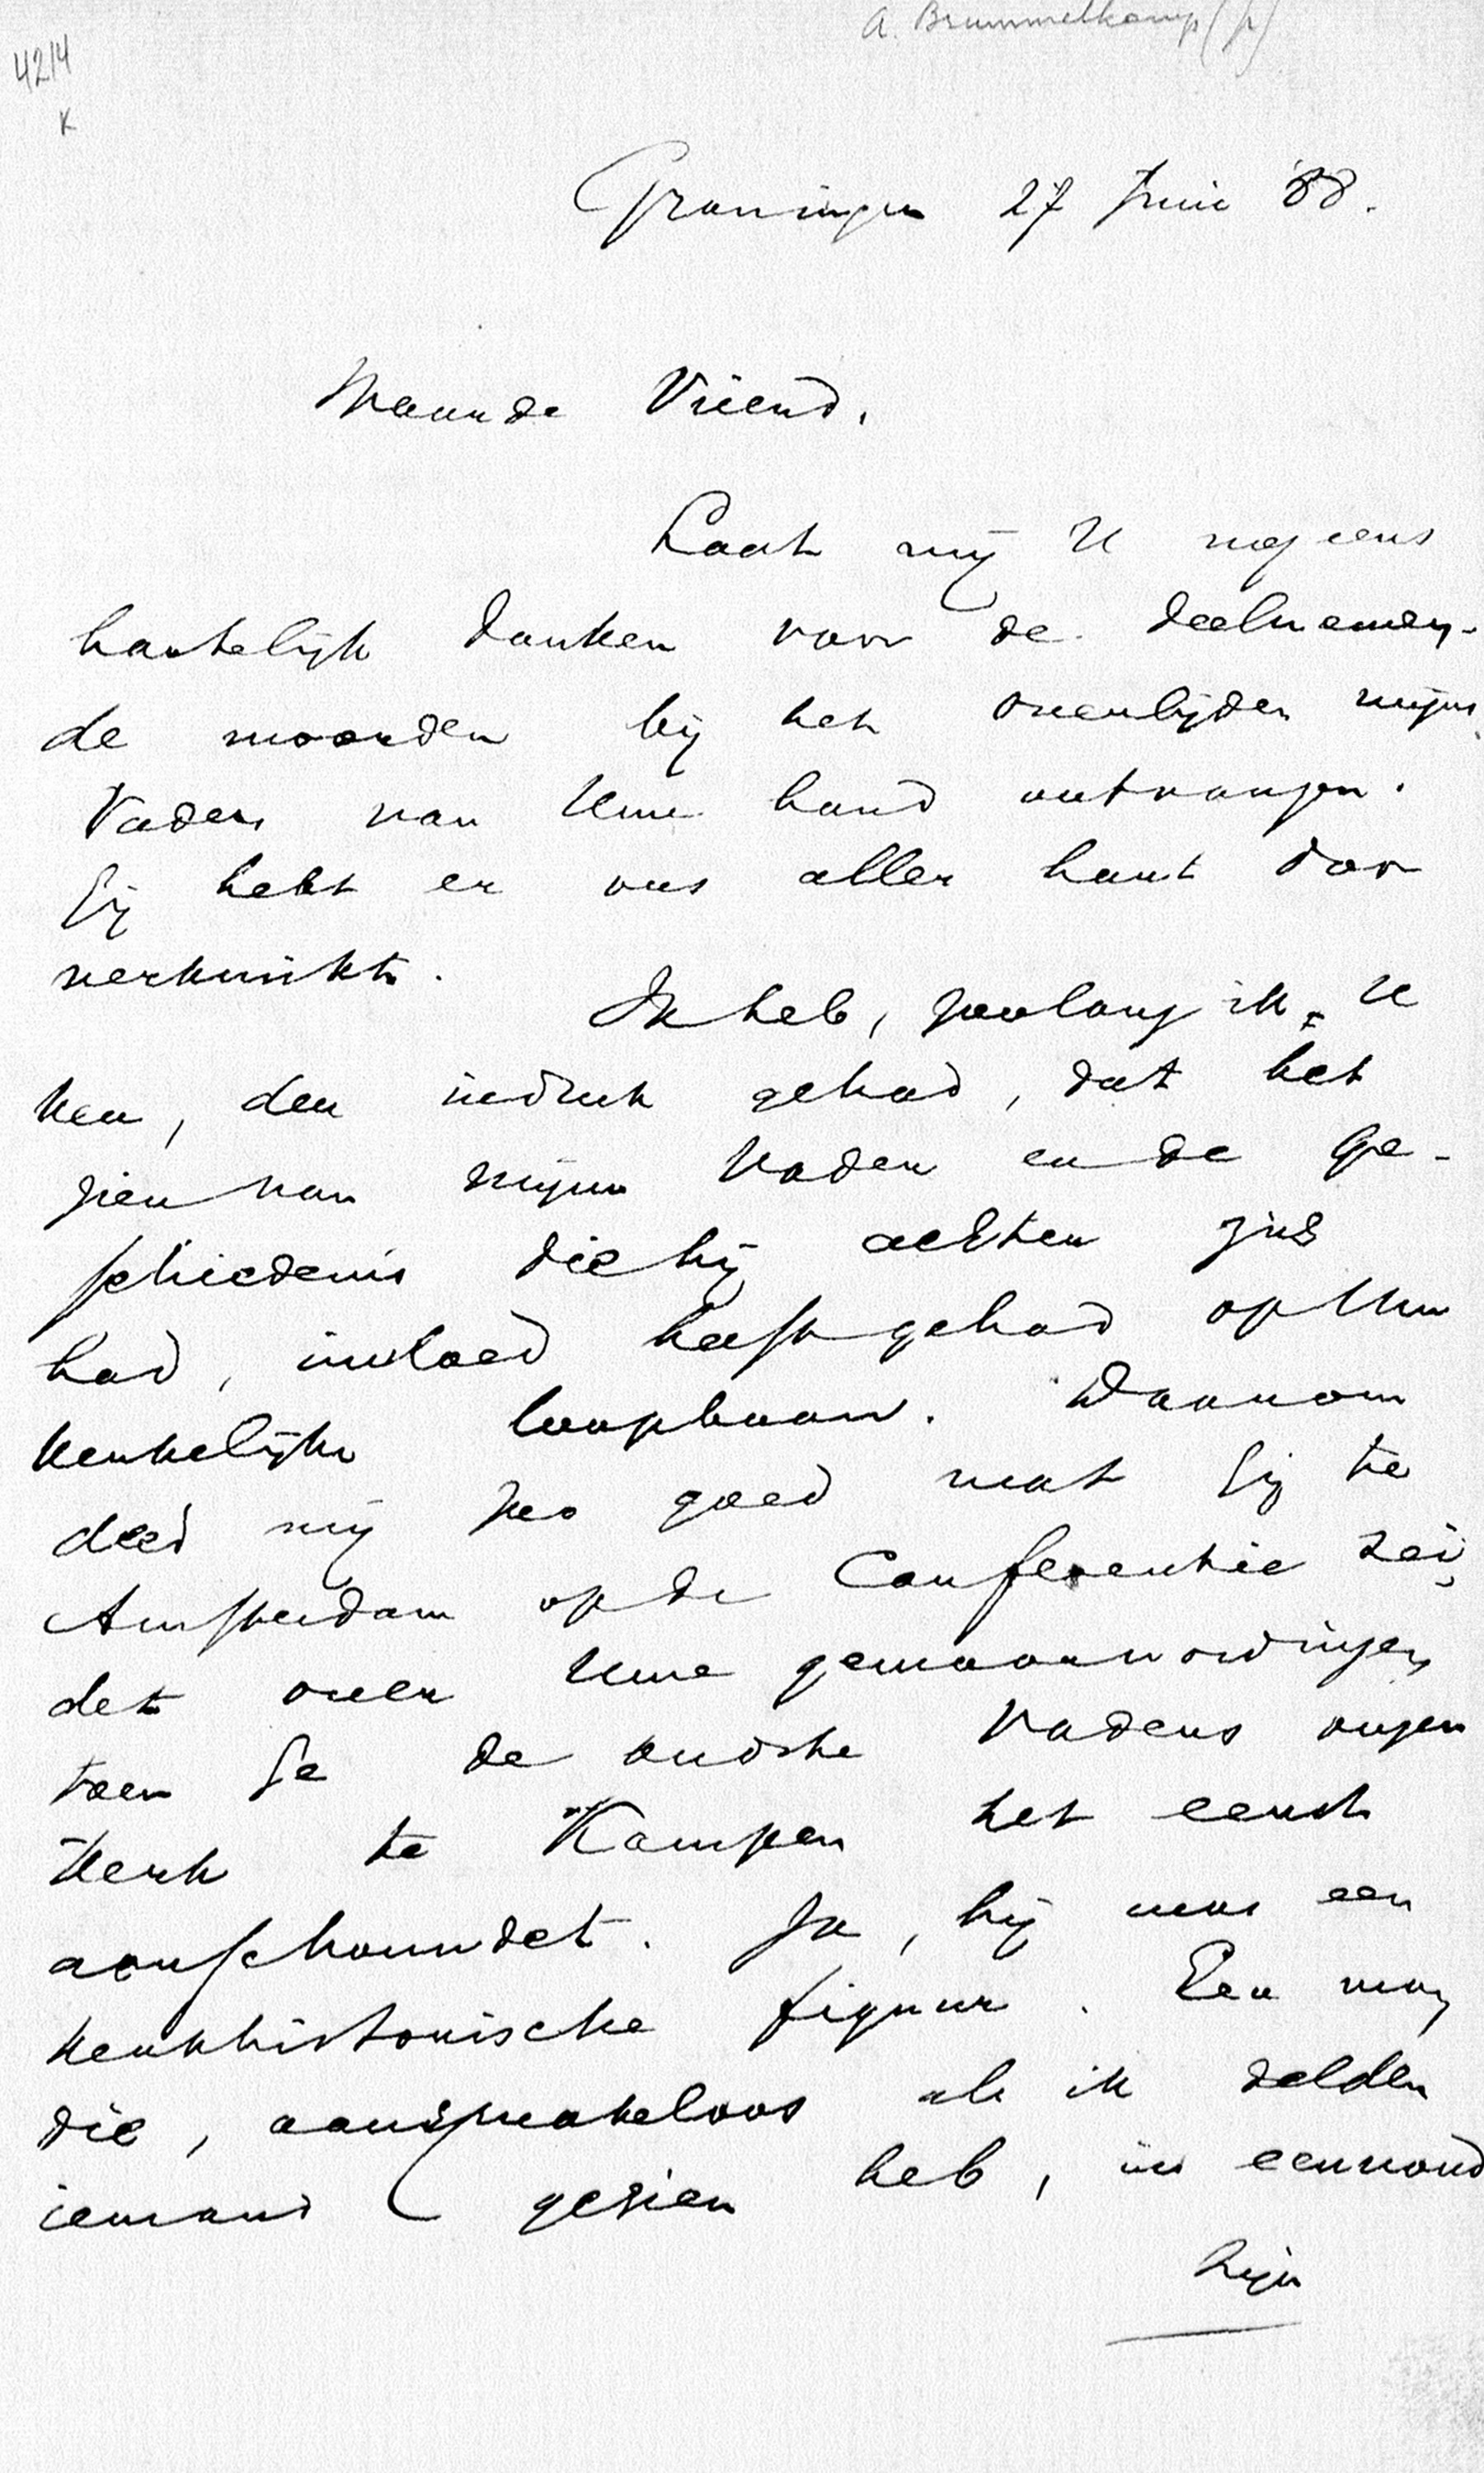 A. Brummelkamp (jr)
4214
K
Groningen 27 Juni '88.
Waarde Vriend.
Laat mij U nog eens
hartelijk danken voor de deelnemen-
de woorden bij het overlijden mijns
Vaders van Uwe hand ontvangen.
Gij hebt er ons aller hart door
verkwikt.
Ik heb, zoolang ik U
ken, den indruk gehad, dat het
zien van mijn Vader en de ge-
schiedenis die hij achter zich
had, invloed heeft gehad op Uw
kerkelijke loopbaan. Daarom
deed mij zeo goed wat Gij te
Amsterdam op de Conferentie zei,
det over Uwe gewaarwordingen
toen Ge de oudste Vaders onzer
Kerk te Kampen het eerst
aanschouwdet. Ja, hij was een
kerkhistorische figuur. Een man
die, aanspraakeloos als ik zelden
iemand gezien heb, in eenvoud
zijn